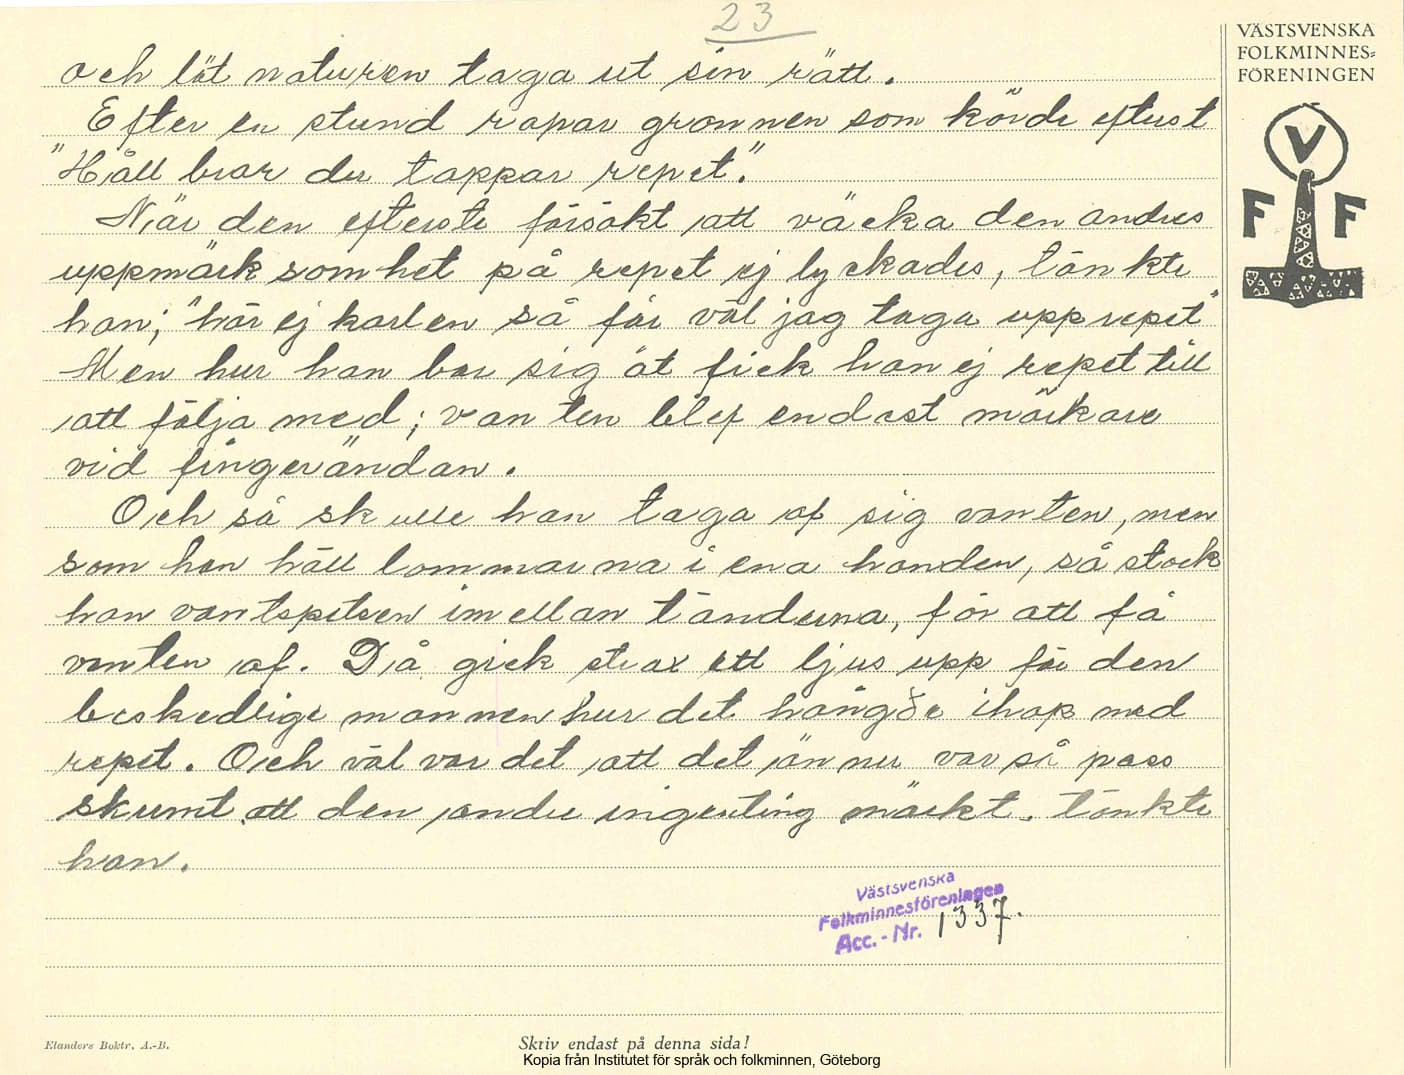 23
VÄSTSVENSKA
FOLKMINNES=
FÖRENINGEN
V
F F
och lät naturen taga ut sin rätt.
Efter en stund ropar grannen som körde efterst
"Håll brar du tappar repet".
När den efterste försökt att väcka den andres
uppmärksomhet på repet ej lyckades, tänkte
han; "hör ej karlen så får väl jag taga upp repet"
Men hur han bar sig åt fick han ej repet till
att följa med; vanten blef endast mörkare
vid fingerändan.
Och så skulle han taga af sig vanten, men
som han höll tömmarna i ena handen, så stack
han vantspetsen imellan tänderna, för att få
vanten af. Då gick strax ett ljus upp för den
beskedlige mannen hur det hängde ihop med
repet. Och väl var det att det ännu var så pass
skumt att den andre ingenting märkt. tänkte
han.
Västsvenska
Folkminnesföreningen
Acc.-Nr. 1337.
Elanders Boktr. A.-B.
Skriv endast på denna sida!
Kopia från Institutet för språk och folkminnen, Göteborg